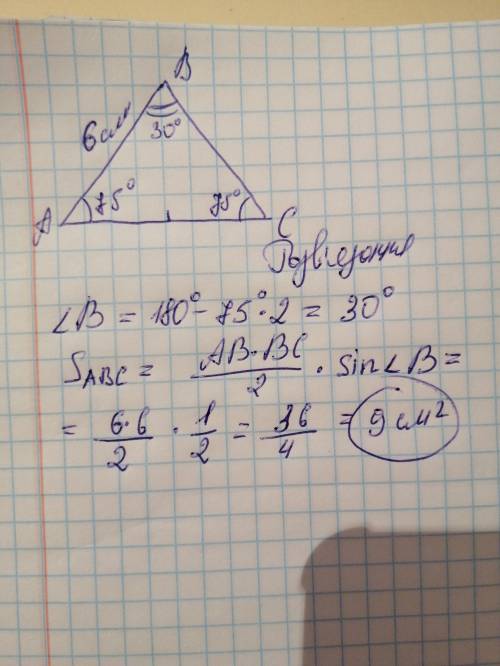 B
6 см
30°
75° 75°
A C
Розв'язання
∠B = 180° - 75° · 2 = 30°
S_ABC = AB · BC / 2 · sin∠B =
= 6·6 / 2 · 1/2 = 36/4 = 9 см²